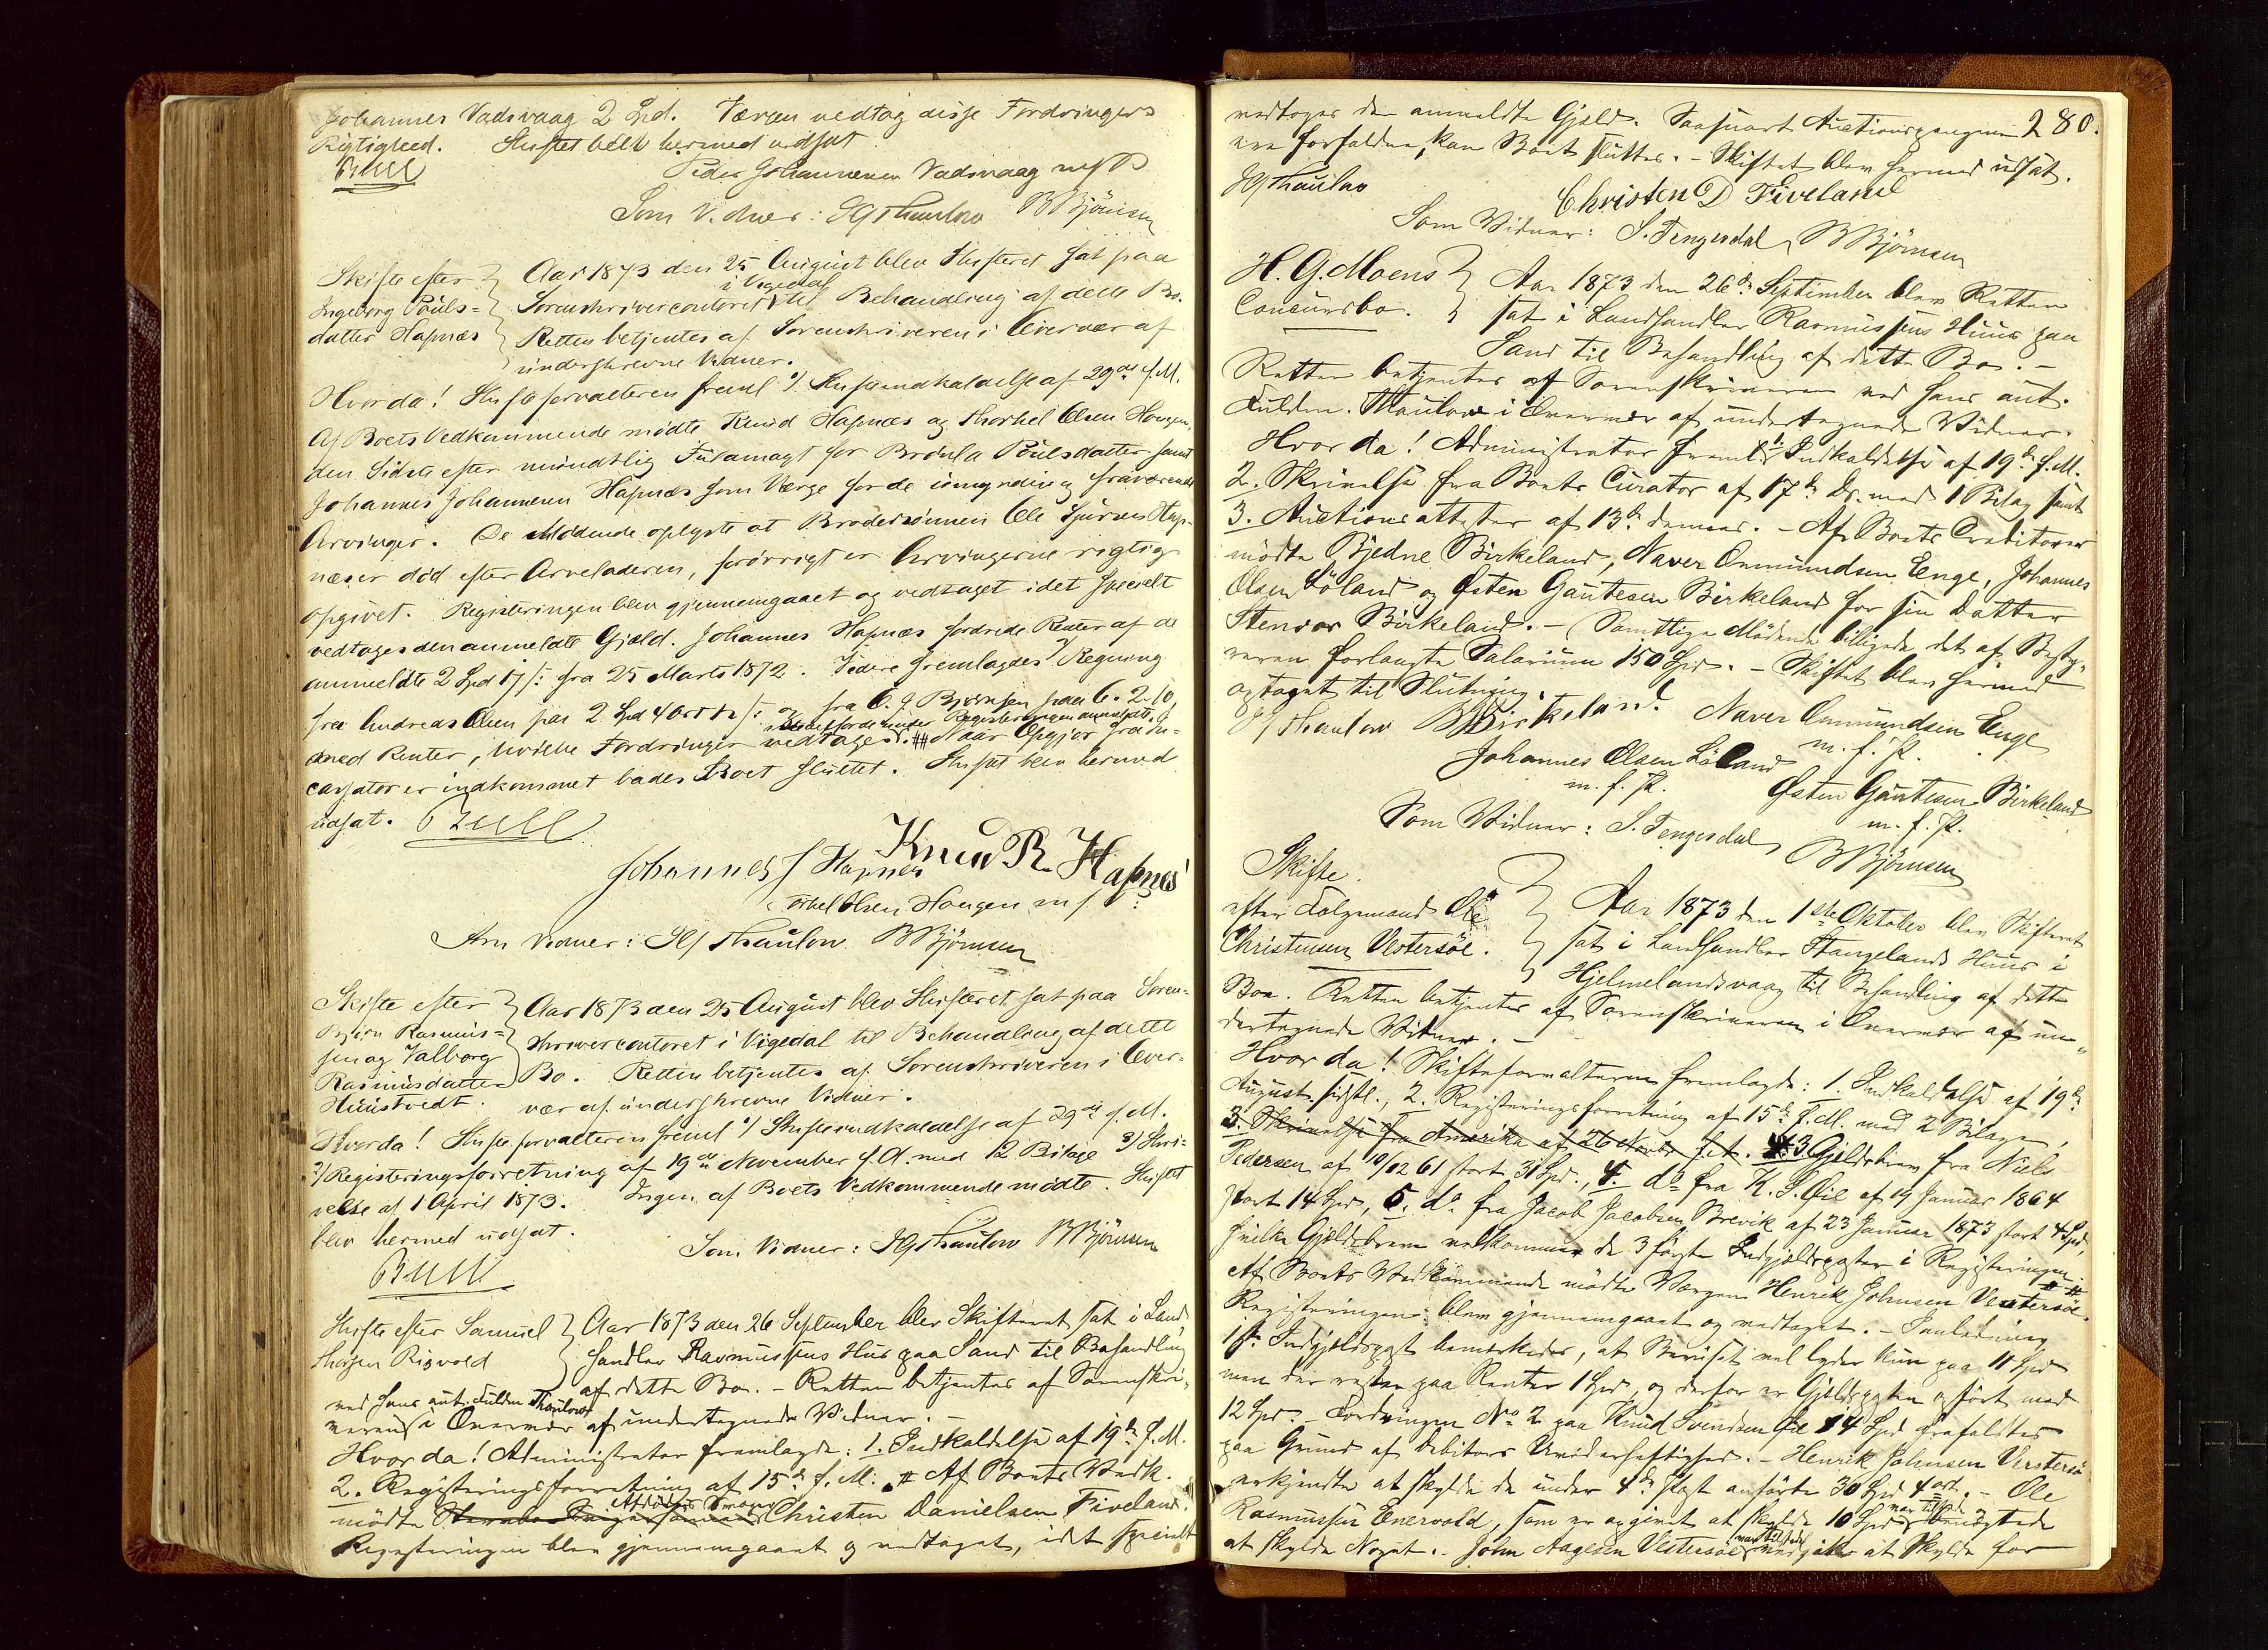 Johannes Vadsvaag 2 Spd. Værgen vedtog disse Fordringers
Rigtighed. Skiftet blev hermed udsat.
Bull
Peder Johannesen Vadsvaag
Som Vidner: HG Thaulow BBjörnsen
Skifte efter
Ingeborg Pouls-
datter Hapnæs
Aar 1873 den 25 August blev Skifteret sat paa
Sorenskrivercontoret i Vigedal til Behandling af dette Bo.
Retten betjentes af Sorenskriveren i Overvær af
underskrevne Vidner.
Hvorda! Skifteforvalteren freml 1/ Skifteindkaldelse af 29de f.M.
Af Boets Vedkommende mødte Knud Hapnæs og Thorkel Olsen Hougen,
den Sidste efter mundtlig Fuldmagt for Poulsdatter samt
Johannes Johannesen Hapnæs som Værge for de umyndige og fraværende
Arvinger. De Mödende oplyste at Brodersönnen Ole Hap-
næs er död efter Arveladeren, forövrigt er Arvingerne rigtig
opgivet. Registeringen blev gjennemgaaet og vedtaget idet specielt
vedtages den anmeldte Gjæld. Johannes Hapnæs fordrede Renter af de
anmeldte 2 Spd 17 s: fra 25 Marts 1872. Videre fremlagdes Regning
fra Andreas Olsen paa 2 Spd 4 Ort s: og fra O. J. Bjørnsen paa 6.2.10,
med Renter, hvilke Fordringer vedtages. Naar Opgjör fra In-
cassator er indkommet bades Boet sluttet. Skiftet blev hermed
udsat. Bull
Knud R. Hapnes
Johannes J Hapnes
Thorkel Olsen Hougen m/
Som Vidner: HG Thaulow BBjörnsen
Skifte efter
Björn Rasmus-
sen og Valborg
Rasmusdatter
Huustvedt.
Aar 1873 den 25 August blev Skifteret sat paa Soren-
skrivercontoret i Vigedal til Behandling af dette
Bo. Retten betjentes af Sorenskriveren i Over-
vær af underskrevne Vidner.
Hvorda! Skifteforvalteren freml 1/ Skifteindkaldelse af 29de f.M.
2/ Registeringsforretning af 19de November f.A. med 12 Bilage 3/ Skri-
velse af 1 April 1873. Ingen af Boets Vedkommende mødte. Skiftet
blev hermed udsat.
Bull
Som Vidner: HG Thaulow BBjörnsen
Skifte efter Samuel
Rigvold
Aar 1873 den 26 September blev Skifteret sat i Land-
handler Rasmussens Hus paa Sand til Behandling
af dette Bo. - Retten betjentes af Sorenskri-
ved hans aut. Fuldm. Thaulow
veren i Overvær af undertegnede Vidner. -
Hvor da! Administrator fremlagde: 1. Indkaldelse af 19de f.M.
2. Registeringsforretning af 15de f.M. Af Boets Vedk.
mødte Christen Danielsen Fiveland.
Registeringen blev gjennemgaaet og vedtaget, idet specielt
280.
vedtoges den anmeldte Gjæld. Saasnart Auctionspengene
ere forfaldne, kan Boet sluttes. - Skiftet blev hermed udsat.
HG Thaulow
Christen D Fiveland
Som Vidner: S. Tengesdal BBjörnsen
H. G. Moens
Concursbo.
Aar 1873 den 26de September blev Retten
sat i Landhandler Rasmussens Huus paa
Sand til Behandling af dette Bo. -
Retten betjentes af Sorenskriveren ved hans aut.
Fuldm. Thaulow i Overvær af undertegnede Vidner.
Hvor da! Administrator freml. 1. Indkaldelse af 19de f.M.
2. Skrivelse fra Boets Curator af 17de ds. med 1 Bilag samt
3. Auctionsattester af 13de dennes. - Af Boets Creditorer
mødte Bjedne Birkeland, Naver Onmundsen Enge, Johannes
Olsen Löland og Østen Gautesen Birkeland for sin Datter
Stenvor Birkeland. - Samtlige Mödende billigede det af Besty-
reren forlangte Salarium 150 Spd. - Skiftet blev hermed
optaget til Slutning.
HG Thaulow B Birkeland. Naver Onmundsen Enge
m. f. P.
Johannes Olsen Löland
m. f. P.
Østen Gautesen Birkeland
m. f. P.
Som Vidner: S. Tengesdal
BBjörnsen
Skifte
efter Folgemand Ole
Christensen Vestersöe.
Aar 1873 den 1ste Oktober blev Skifteret
sat i Landhandler Stangelands Huus i
Hjelmelandsvaag til Behandling af dette
Bo. Retten betjentes af Sorenskriveren i Overvær af un-
dertegnede Vidner. -
Hvor da! Skifteforvalteren fremlagde: 1. Indkaldelse af 19de
August sidstl., 2. Registeringsforretning af 15de f.M. med 2 Bilage,
3. Skrivelse fra Amerika af 26 Novbr f.A. 3 Gjeldsbrev fra Niels
Pedersen af 10/12 61 stort 31 Spd., 4. do fra K. S. Øie af 19 Januar 1864
stort 14 Spd, 5. do fra Jacob Jacobsen Brevik af 23 Januar 1873 stort 4 Spd,
hvilke Gjældsbreve vedkommer de 3 første Indgjældsposter i Registeringen.
Af Boets Vedkommende mødte Værgen Henrik Johnsen Vestersöe.
Registeringen blev gjennemgaaet og vedtaget. - I Anledning
1ste Indgjældspost bemærkedes, at Beviset vel lyder kun paa 11 Spd
men der rester paa Renter 1 Spd, og derfor er Gjældsposten opført med
12 Spd. - Fordringen No 2 paa Knud Svendsen Øie 14 Spd frafaldtes
paa Grund af Debitors Uvederheftighed. - Henrik Johnsen Vestersö
erkjendte at skylde de under 4de Post anførte 30 Spd 4 ort. - Ole
Rasmussen Enervold, som er opgivet at skylde 10 Spd var tilstede benægtede
at skylde Noget. - John Aagesen Vestersöe var tilstede vedgik at skylde for